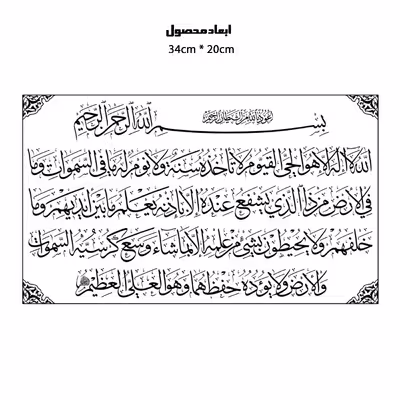 ابعاد محصول
34cm * 20cm
اعوذ بالله من الشیطان الرجیم
بسم الله الرحمن الرحیم
الله لا اله الا هو الحی القیوم لا تاخذه سنة ولا نوم له ما فی السموات وما
فی الارض من ذا الذی یشفع عنده الا باذنه یعلم ما بین ایدیهم وما
خلفهم ولا یحیطون بشیء من علمه الا بما شاء وسع کرسیه السموات
والارض ولا یؤده حفظهما وهو العلی العظیم